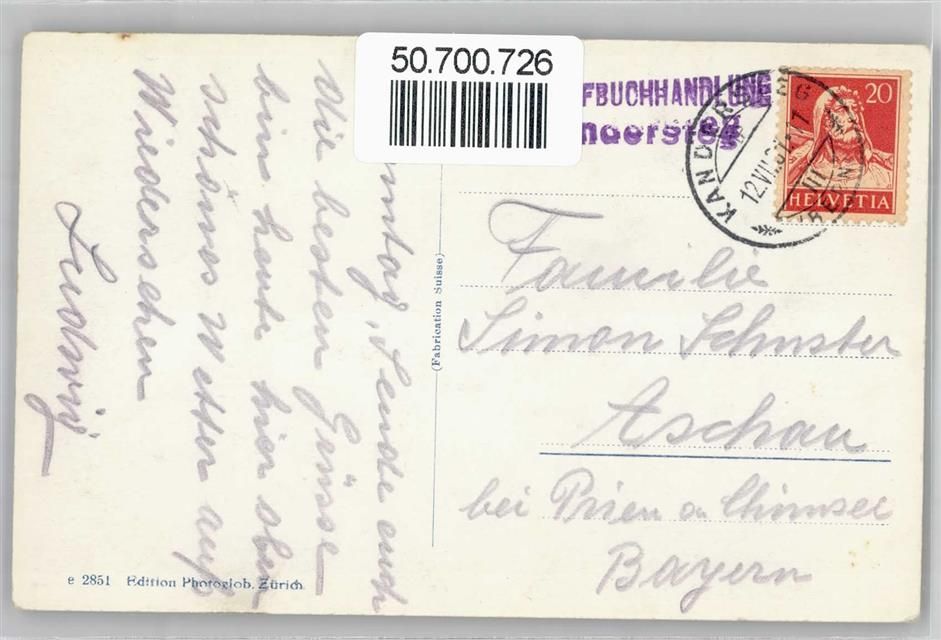 50.700.726
FBUCHHANDLUNG
ndersteg
KANDERSTEG
12.VII.
(BERN)
20
HELVETIA
Sende euch
die besten Grüsse
bin heute hier oben
schönes Wetter auf
Wiedersehen
Ludwig
(Fabrication Suisse)
Familie
Simon Schuster
Aschau
bei Prien a Chimsee
Bayern
e 2851 Edition Photoglob, Zürich